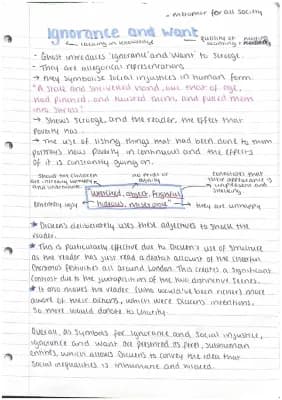 → microcosm for all society
Ignorance and Want
↳ lacking in knowledge
- Ghost introduces 'Ignorance' and 'Want' to Scrooge.
- They are allegorical representations
→ they symbolise social injustices in human form.
"A stale and shrivelled hand, like that of age,
had pinched, and twisted them, and pulled them
into shreds"
→ Shows Scrooge, and the reader, the effect that
poverty has
→ The use of listing things that had been done to them
portrays how poverty is continuous and the effects
of it is constantly going on.
Shows the children
no pride or
dignity
connotes that
their appearance is
unpleasant and
shocking
"wretched, abject, frightful,
hideous, miserable"
Extremely ugly
→ they are unhappy
★ Dickens deliberately uses these adjectives to shock the
reader.
★ This is particularly effective due to Dickens's use of structure
as the reader has just read a detailed account of the cheerful
Christmas festivities all around London. This creates a significant
contrast due to the juxtaposition of the two different scenes.
★ It also makes the reader (who would've been richer) more
aware of their actions, which were Dickens's intentions,
so more would donate to charity.
Overall, as symbols for ignorance and social injustice,
Ignorance and Want are presented as feral, subhuman
entities, which allows Dickens to convey the idea that
social inequalities is inhumane and